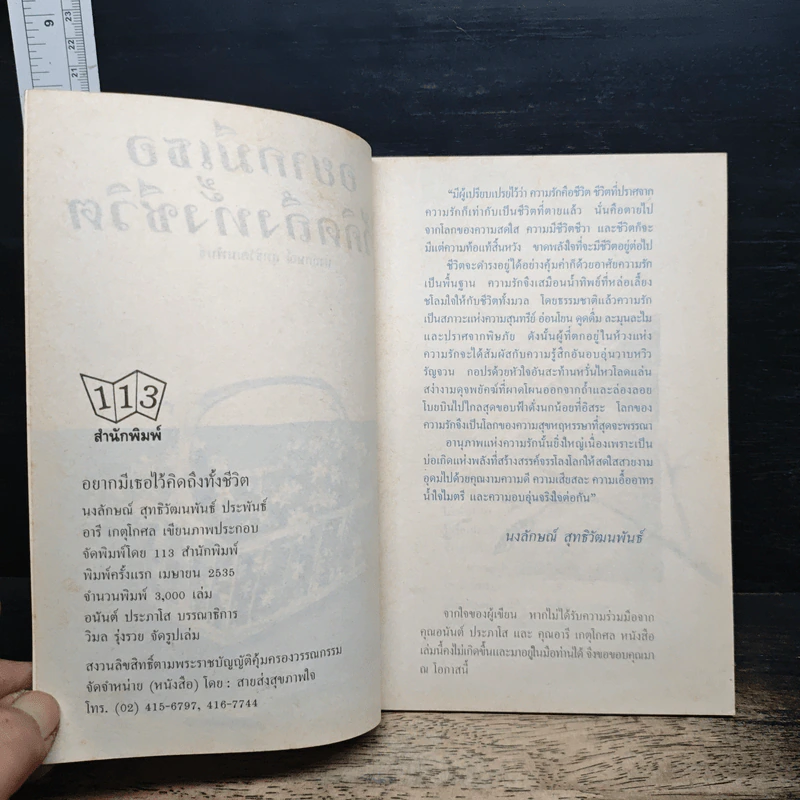 9
23
22
21
อยากมีเธอ
ไว้คิดถึงทั้งชีวิต
นงลักษณ์ สุทธิวัฒนพันธ์
113
สำนักพิมพ์
อยากมีเธอไว้คิดถึงทั้งชีวิต
นงลักษณ์ สุทธิวัฒนพันธ์ ประพันธ์
อารี เกตุโกศล เขียนภาพประกอบ
จัดพิมพ์โดย 113 สำนักพิมพ์
พิมพ์ครั้งแรก เมษายน 2535
จำนวนพิมพ์ 3,000 เล่ม
อนันต์ ประภาโส บรรณาธิการ
วิมล รุ่งรวย จัดรูปเล่ม
สงวนลิขสิทธิ์ตามพระราชบัญญัติคุ้มครองวรรณกรรม
จัดจำหน่าย (หนังสือ) โดย : สายส่งสุขภาพใจ
โทร. (02) 415-6797, 416-7744
“มีผู้เปรียบเปรยไว้ว่า ความรักคือชีวิต ชีวิตที่ปราศจาก
ความรักก็เท่ากับเป็นชีวิตที่ตายแล้ว นั่นคือตายไป
จากโลกของความสดใส ความมีชีวิตชีวา และชีวิตก็จะ
มีแต่ความท้อแท้สิ้นหวัง ขาดพลังใจที่จะมีชีวิตอยู่ต่อไป
ชีวิตจะดำรงอยู่ได้อย่างคุ้มค่าก็ด้วยอาศัยความรัก
เป็นพื้นฐาน ความรักจึงเสมือนน้ำทิพย์ที่หล่อเลี้ยง
ชโลมใจให้กับชีวิตทั้งมวล โดยธรรมชาติแล้วความรัก
เป็นสภาวะแห่งความสุนทรีย์ อ่อนโยน ดูดดื่ม ละมุนละไม
และปราศจากพิษภัย ดังนั้นผู้ที่ตกอยู่ในห้วงแห่ง
ความรักจะได้สัมผัสกับความรู้สึกอันอบอุ่นวาบหวิว
รัญจวน กอปรด้วยหัวใจอันสะท้านหวั่นไหวโลดแล่น
สง่างามดุจพยัคฆ์ที่ผาดโผนออกจากถ้ำและล่องลอย
โบยบินไปไกลสุดขอบฟ้าดั่งนกน้อยที่อิสระ โลกของ
ความรักจึงเป็นโลกของความสุขหฤหรรษาที่สุดจะพรรณา
อานุภาพแห่งความรักนั้นยิ่งใหญ่เนื่องเพราะเป็น
บ่อเกิดแห่งพลังที่สร้างสรรค์จรรโลงโลกให้สดใสสวยงาม
อุดมไปด้วยคุณงามความดี ความเสียสละ ความเอื้ออาทร
น้ำใจไมตรี และความอบอุ่นจริงใจต่อกัน”
นงลักษณ์ สุทธิวัฒนพันธ์
จากใจของผู้เขียน หากไม่ได้รับความร่วมมือจาก
คุณอนันต์ ประภาโส และ คุณอารี เกตุโกศล หนังสือ
เล่มนี้คงไม่เกิดขึ้นและมาอยู่ในมือท่านได้ จึงขอขอบคุณมา
ณ โอกาสนี้